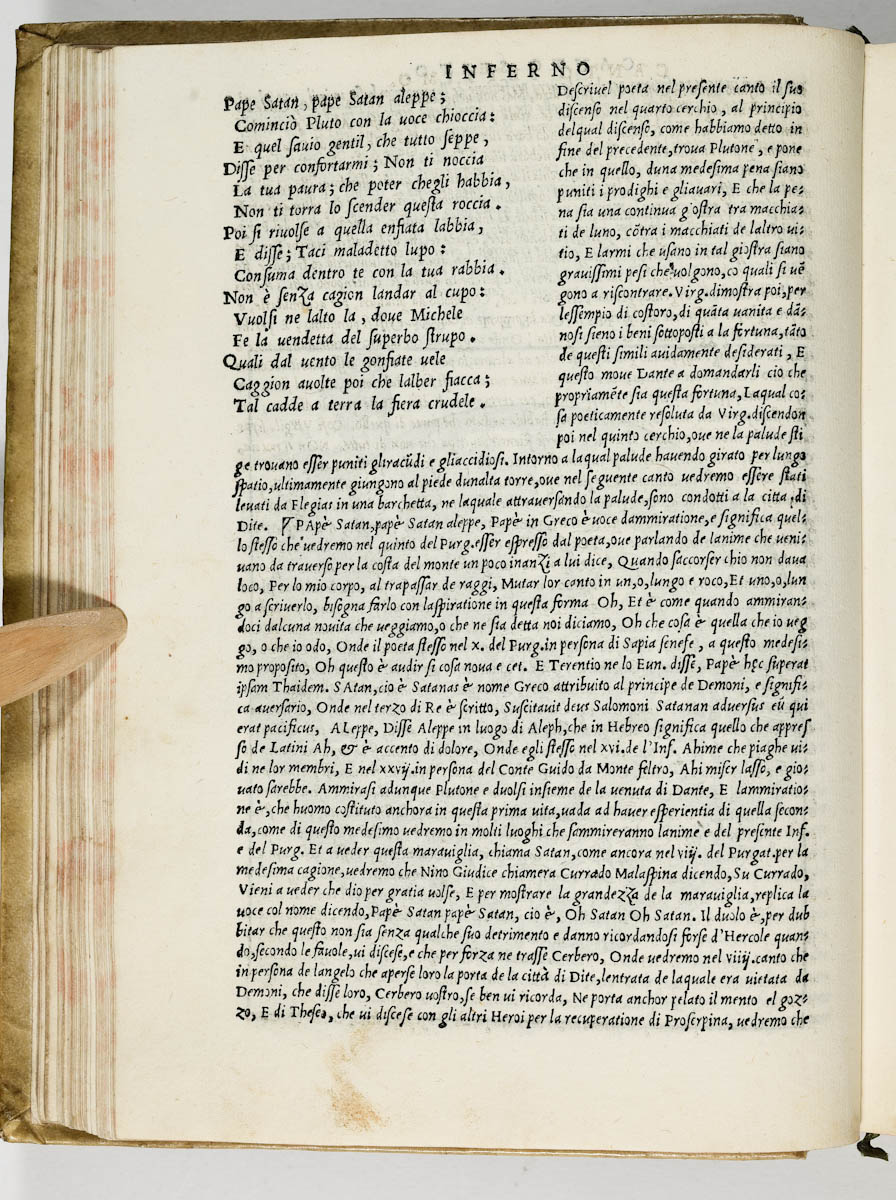 INFERNO
Pape Satan, pape Satan aleppe;
Cominciò Pluto con la uoce chioccia:
E quel ſauio gentil, che tutto ſeppe,
Diſſe per confortarmi; Non ti noccia
La tua paura; che poter chegli habbia,
Non ti torra lo ſcender queſta roccia.
Poi ſi riuolſe a quella enfiata labbia,
E diſſe; Taci maladetto lupo:
Conſuma dentro te con la tua rabbia.
Non è ſenza cagion landar al cupo:
Vuolſi ne lalto la, doue Michele
Fe la uendetta del ſuperbo ſtrupo.
Quali dal uento le gonfiate uele
Caggion auolte poi che lalber fiacca;
Tal cadde a terra la fiera crudele.
Deſcriuel poeta nel preſente canto il ſuo
diſcenſo nel quarto cerchio, al principio
delqual diſcenſo, come habbiamo detto in
fine del precedente, troua Plutone, e pone
che in quello, duna medeſima pena ſiano
puniti i prodighi e gliauari, E che la pe-
na ſia una continua gioſtra tra macchia-
ti de luno, cõtra i macchiati de laltro ui-
tio, E larmi che uſano in tal gioſtra ſiano
grauiſſimi peſi che uolgono, co quali ſi uẽ
gono a riſcontrare. Virg. dimoſtra poi, per
leſſempio di coſtoro, di quãta uanita e dã-
noſi ſieno i beni ſottopoſti a la fortuna, tãto
de queſti ſimili auidamente deſiderati, E
queſto moue Dante a domandarli cio che
propriamẽte ſia queſta fortuna, Laqual co-
ſa poeticamente reſoluta da Virg. diſcendon
poi nel quinto cerchio, oue ne la palude ſti
ge trouano eſſer puniti gliracũdi e gliaccidioſi. Intorno a laqual palude hauendo girato per lungo
ſpatio, ultimamente giungono al piede dunalta torre, oue nel ſeguente canto uedremo eſſere ſtati
leuati da Flegias in una barchetta, ne laquale attrauerſando la palude, ſono condotti a la citta di
Dite. ¶ PApè Satan, papè Satan aleppe, Papè in Greco è uoce dammiratione, e ſignifica quel-
lo ſteſſo che uedremo nel quinto del Purg. eſſer eſpreſſo dal poeta, oue parlando de lanime che ueni-
uano da trauerſo per la coſta del monte un poco inanzi a lui dice, Quando ſaccorſer chio non daua
loco, Per lo mio corpo, al trapaſſar de raggi, Mutar lor canto in un, o, lungo e roco, Et uno, o, lun
go a ſcriuerlo, biſogna farlo con laſpiratione in queſta forma Oh, Et è come quando ammiran-
doci dalcuna nouita che ueggiamo, o che ne ſia detta noi diciamo, Oh che coſa è quella che io ueg
go, o che io odo, Onde il poeta ſteſſo nel x. del Purg. in perſona di Sapia ſeneſe, a queſto medeſi-
mo propoſito, Oh queſto è audir ſi coſa noua e cet. E Terentio ne lo Eun. diſſe, Papè hęc ſuperat
ipſam Thaidem. SAtan, cio è Satanas è nome Greco attribuito al principe de Demoni, e ſignifi-
ca auerſario, Onde nel terzo di Re è ſcritto, Suſcitauit deus Salomoni Satanan aduerſus eũ qui
erat pacificus, ALeppe, Diſſe Aleppe in luogo di Aleph, che in Hebreo ſignifica quello che appreſ-
ſo de Latini Ah, & è accento di dolore, Onde egli ſteſſo nel xvi. de l'Inf. Ahime che piaghe ui-
di ne lor membri, E nel xxvij. in perſona del Conte Guido da Monte feltro, Ahi miſer laſſo, e gio-
uato ſarebbe. Ammiraſi adunque Plutone e duolſi inſieme de la uenuta di Dante, E lammiratio-
ne è, che huomo coſtituto anchora in queſta prima uita, uada ad hauer eſperientia di quella ſecon-
da, come di queſto medeſimo uedremo in molti luoghi che ſammireranno lanime e del preſente Inf.
e del Purg. Et a ueder queſta marauiglia, chiama Satan, come ancora nel viij. del Purgat. per la
medeſima cagione, uedremo che Nino Giudice chiamera Currado Malaſpina dicendo, Su Currado,
Vieni a ueder che dio per gratia uolſe, E per moſtrare la grandezza de la marauiglia, replica la
uoce col nome dicendo, Papè Satan papè Satan, cio è, Oh Satan Oh Satan. Il duolo è, per dub
bitar che queſto non ſia ſenza qualche ſuo detrimento e danno ricordandoſi forſe d'Hercole quan-
do, ſecondo le fauole, ui diſceſe, e che per forza ne traſſe Cerbero, Onde uedremo nel viiij. canto che
in perſona de langelo che aperſe loro la porta de la città di Dite, lentrata de laquale era uietata da
Demoni, che diſſe loro, Cerbero uoſtro, ſe ben ui ricorda, Ne porta anchor pelato il mento el goz-
zo, E di Theſeo, che ui diſceſe con gli altri Heroi per la recuperatione di Proſerpina, uedremo che